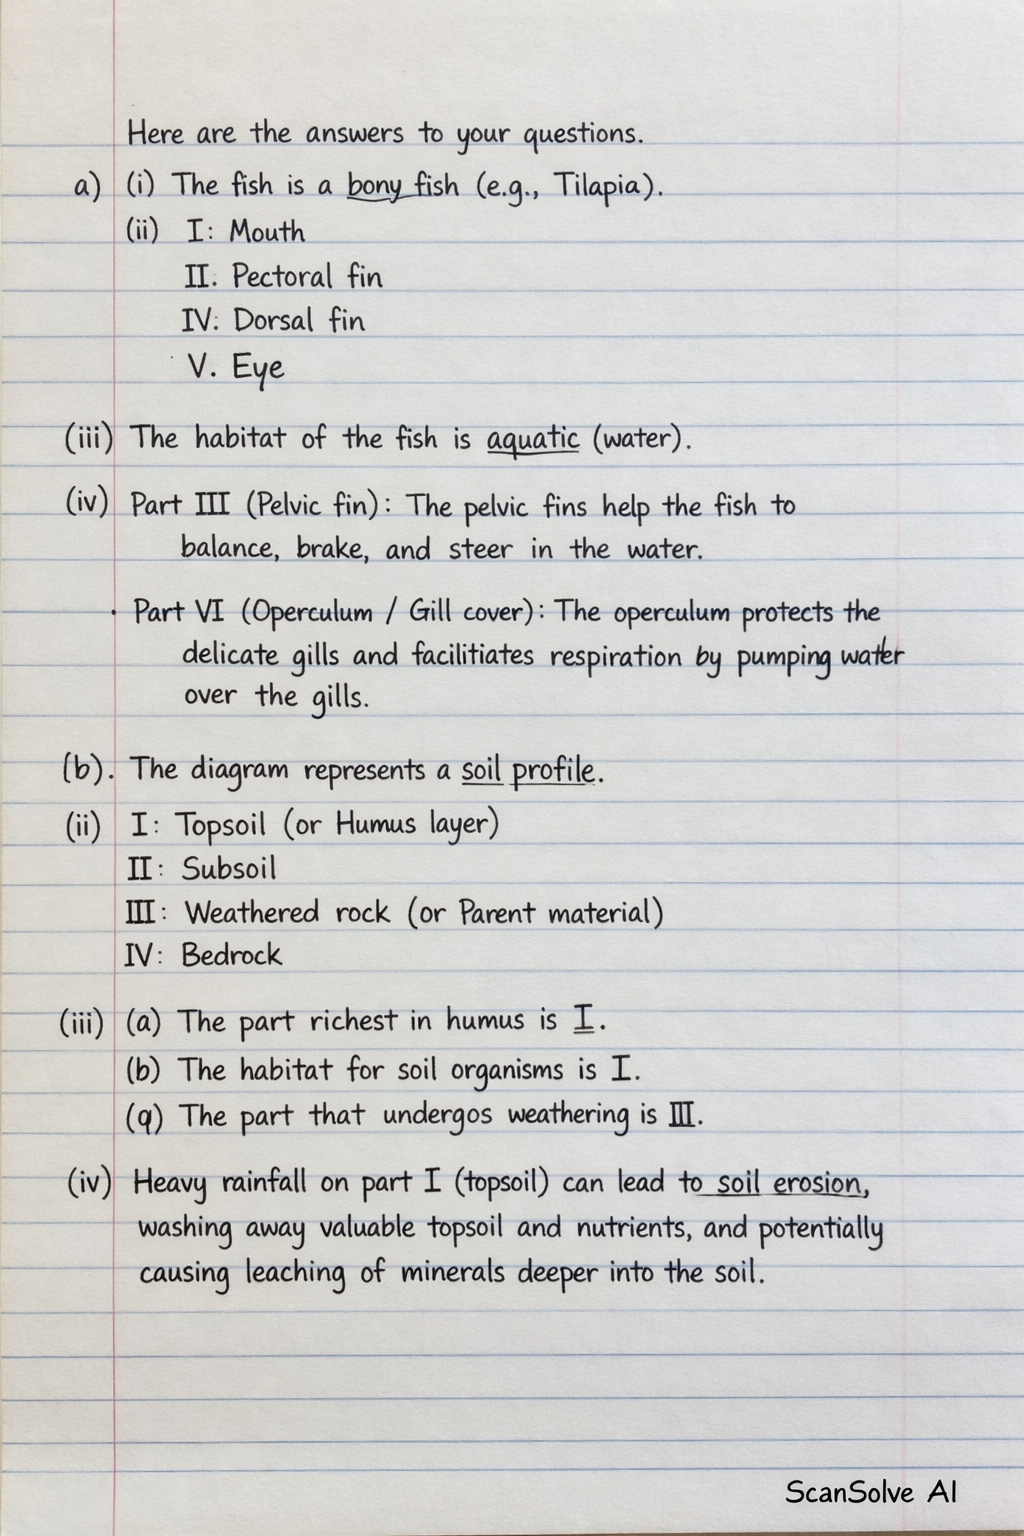 Here are the answers to your questions.
a) (i) The fish is a bony fish (e.g., Tilapia).
(ii) I: Mouth
II. Pectoral fin
IV: Dorsal fin
V. Eye
(iii) The habitat of the fish is aquatic (water).
(iv) Part III (Pelvic fin): The pelvic fins help the fish to
balance, brake, and steer in the water.
· Part VI (Operculum / Gill cover): The operculum protects the
delicate gills and facilitiates respiration by pumping water
over the gills.
(b). The diagram represents a soil profile.
(ii) I: Topsoil (or Humus layer)
II: Subsoil
III: Weathered rock (or Parent material)
IV: Bedrock
(iii) (a) The part richest in humus is I.
(b) The habitat for soil organisms is I.
(q) The part that undergos weathering is III.
(iv) Heavy rainfall on part I (topsoil) can lead to soil erosion,
washing away valuable topsoil and nutrients, and potentially
causing leaching of minerals deeper into the soil.
ScanSolve AI